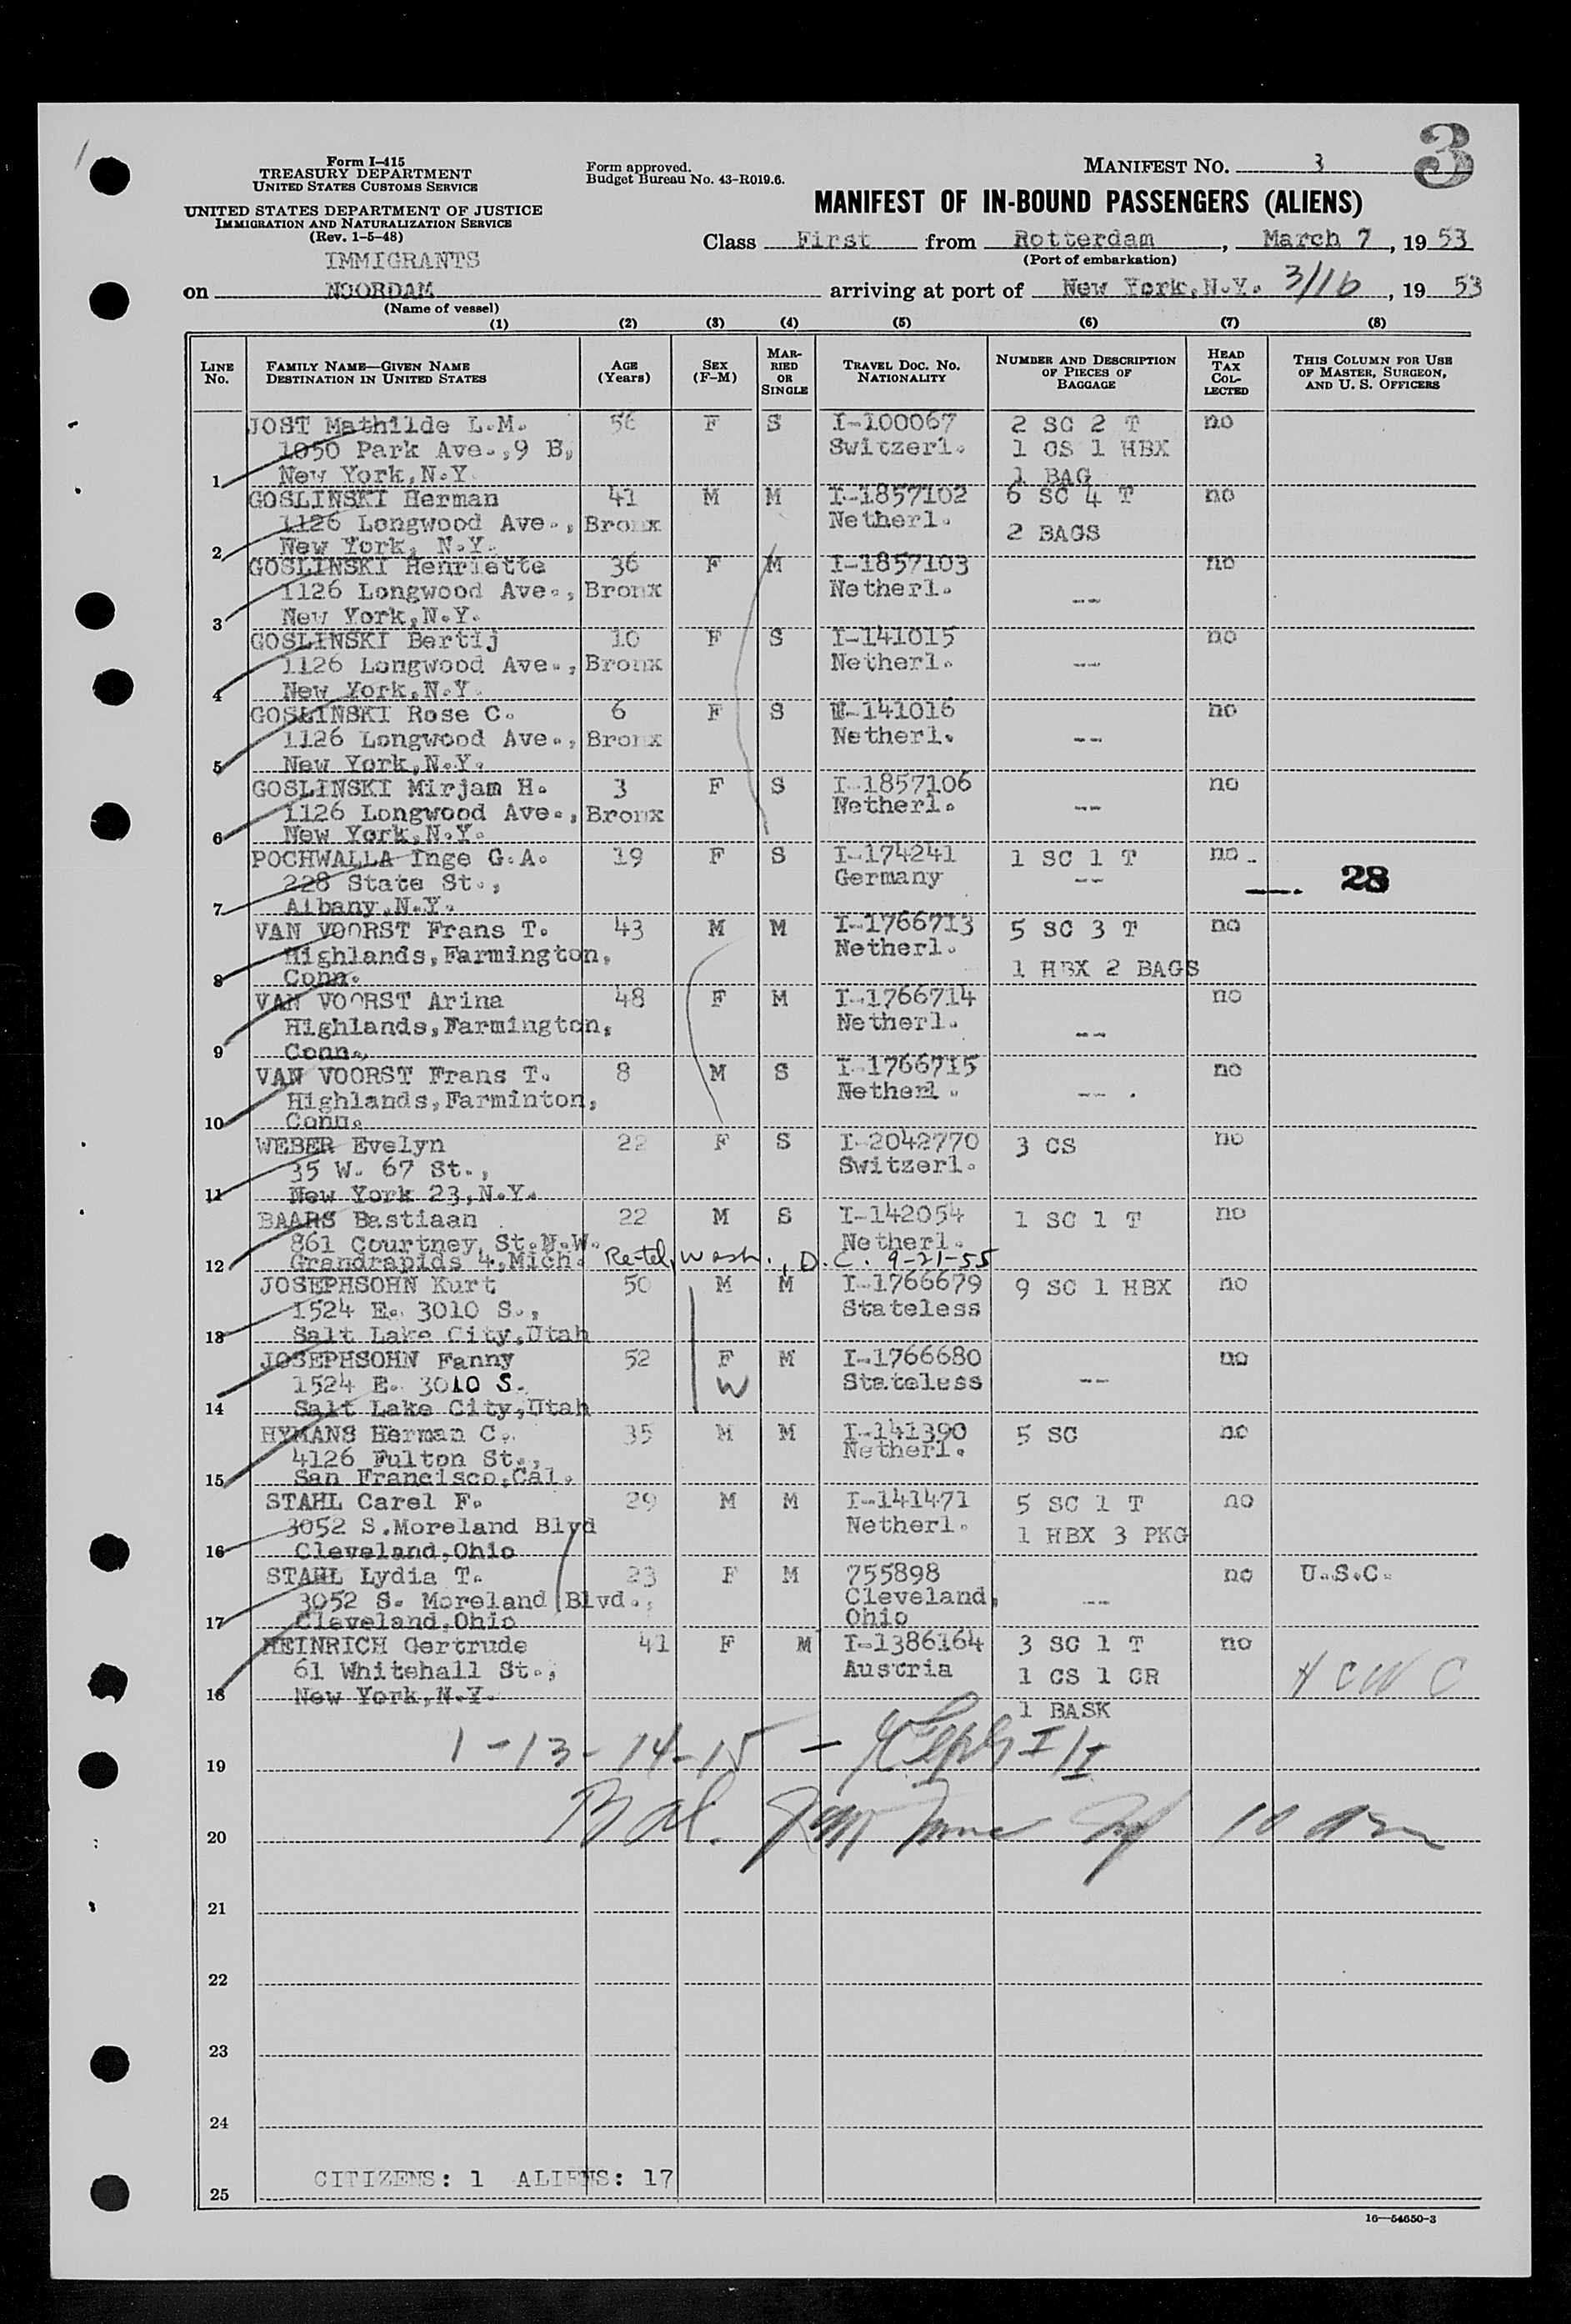 3
Form I-415
TREASURY DEPARTMENT
UNITED STATES CUSTOMS SERVICE
UNITED STATES DEPARTMENT OF JUSTICE
IMMIGRATION AND NATURALIZATION SERVICE
(Rev. 1-5-48)
Form approved.
Budget Bureau No. 43-R019.6.
MANIFEST NO. 3
MANIFEST OF IN-BOUND PASSENGERS (ALIENS)
Class First from Rotterdam, March 7, 19 53
(Port of embarkation)
IMMIGRANTS
on NOORDAM arriving at port of New York, N.Y. 3/16, 19 53
(Name of vessel)
(1) (2) (3) (4) (5) (6) (7) (8)
LINE No. FAMILY NAME—GIVEN NAME DESTINATION IN UNITED STATES AGE (Years) SEX (F-M) MARRIED OR SINGLE TRAVEL DOC. NO. NATIONALITY NUMBER AND DESCRIPTION OF PIECES OF BAGGAGE HEAD TAX COLLECTED THIS COLUMN FOR USE OF MASTER, SURGEON, AND U. S. OFFICERS
JOST Mathilde L.M. 56 F S I-100067 2 SC 2 T no
1050 Park Ave.,9 B, Switzerl. 1 CS 1 HBX
1 New York,N.Y. 1 BAG
GOSLINSKI Herman 41 M M I-1857102 6 SC 4 T no
1126 Longwood Ave., Bronx Netherl. 2 BAGS
2 New York, N.Y.
GOSLINSKI Henriette 36 F M I-1857103 no
1126 Longwood Ave., Bronx Netherl. --
3 New York,N.Y.
GOSLINSKI Bertij 10 F S I-141015 no
1126 Longwood Ave., Bronx Netherl. --
4 New York,N.Y.
GOSLINSKI Rose C. 6 F S I-141016 no
1126 Longwood Ave., Bronx Netherl. --
5 New York,N.Y.
GOSLINSKI Mirjam H. 3 F S I-1857106 no
1126 Longwood Ave., Bronx Netherl. --
6 New York,N.Y.
POCHWALLA Inge G.A. 19 F S I-174241 1 SC 1 T no
228 State St., Germany -- 28
7 Albany,N.Y.
VAN VOORST Frans T. 43 M M I-1766713 5 SC 3 T no
Highlands,Farmington, Netherl. 1 HBX 2 BAGS
8 Conn.
VAN VOORST Arina 48 F M I-1766714 no
Highlands,Farmington, Netherl. --
9 Conn.
VAN VOORST Frans T. 8 M S I-1766715 no
Highlands,Farminton, Netherl. --
10 Conn.
WEBER Evelyn 22 F S I-2042770 3 CS no
35 W. 67 St., Switzerl.
11 New York 23,N.Y.
BAARS Bastiaan 22 M S I-142054 1 SC 1 T no
861 Courtney, St.N.W. Netherl.
12 Grandrapids 4,Mich. Re-tel, Wash., D.C. 9-21-55
JOSEPHSOHN Kurt 50 M M I-1766679 9 SC 1 HBX no
1524 E. 3010 S., Stateless
13 Salt Lake City,Utah
JOSEPHSOHN Fanny 52 F M I-1766680 no
1524 E. 3010 S. W Stateless --
14 Salt Lake City,Utah
HYMANS Herman C. 35 M M I-141390 5 SC no
4126 Fulton St., Netherl.
15 San Francisco,Cal.
STAHL Carel F. 29 M M I-141471 5 SC 1 T no
3052 S.Moreland Blvd Netherl. 1 HBX 3 PKG
16 Cleveland,Ohio
STAHL Lydia T. 23 F M 755898 no U.S.C.
3052 S. Moreland Blvd., Cleveland, --
17 Cleveland,Ohio Ohio
HEINRICH Gertrude 41 F M I-1386164 3 SC 1 T no
61 Whitehall St., Austria 1 CS 1 CR
18 New York,N.Y. 1 BASK
19 1-13-14-15 -
20 Bal.
21
22
23
24
CITIZENS: 1 ALIENS: 17
25
16—54650-3